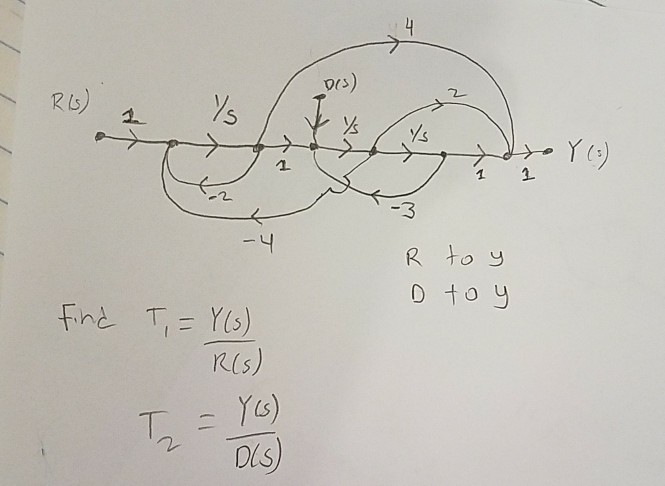 4
D(s)
R(s)
1
1/s
2
1/s
1/s
1
1
1
Y(s)
-2
-3
-4
R to y
D to y
Find T₁ = Y(s)
R(s)
T₂ = Y(s)
D(s)